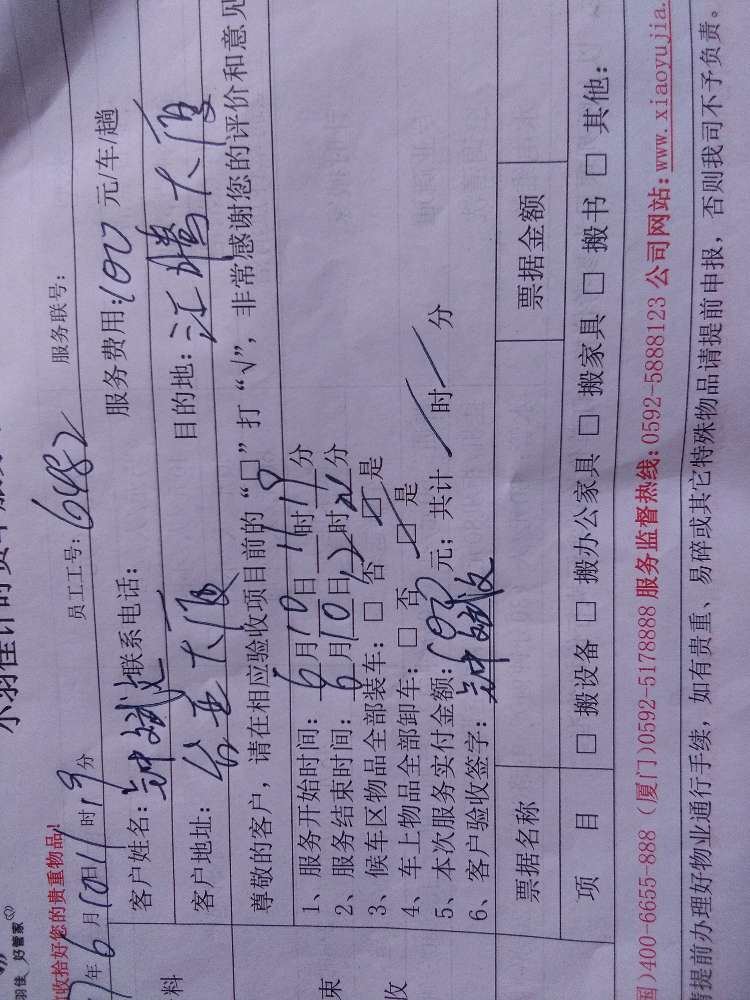 小羽佳计时货车服务
羽佳 好管家
收拾好您的贵重物品!
年6月10日11时19分 员工工号: 6482 服务联号:
客户姓名: 钟斌 联系电话: 服务费用: 100 元/车/趟
客户地址: 大厦 目的地: 汇腾大厦
尊敬的客户，请在相应验收项目前的“□”打“√”，非常感谢您的评价和意见
1、服务开始时间: 6月10日11时19分
2、服务结束时间: 6月10日12时 分
3、候车区物品全部装车: □ 否 ☑ 是
4、车上物品全部卸车: □ 否 ☑ 是
5、本次服务实付金额: 100 元; 共计 / 时 / 分
6、客户验收签字: 钟斌
票据名称 票据金额
项 目 □ 搬设备 □ 搬办公家具 □ 搬家具 □ 搬书 □ 其他:
国)400-6655-888 (厦门)0592-5178888 服务监督热线: 0592-5888123 公司网站: www.xiaoyujia.
提前办理好物业通行手续，如有贵重、易碎或其它特殊物品请提前申报，否则我司不予负责。
料
束
收